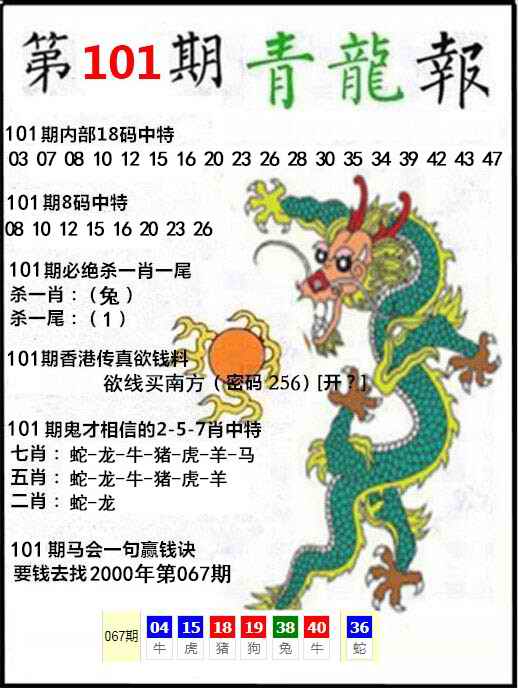 第101期青龍報
101期内部18码中特
03 07 08 10 12 15 16 20 23 26 28 30 35 34 39 42 43 47
101期8码中特
08 10 12 15 16 20 23 26
101期必绝杀一肖一尾
杀一肖：（兔）
杀一尾：（1）
101期香港传真欲钱料
欲线买南方（密码 256）[开？]
101期鬼才相信的2-5-7肖中特
七肖：蛇-龙-牛-猪-虎-羊-马
五肖：蛇-龙-牛-猪-虎-羊
二肖：蛇-龙
101期马会一句赢钱诀
要钱去找2000年第067期
067期 04 15 18 19 38 40 36
牛 虎 猪 狗 兔 牛 蛇